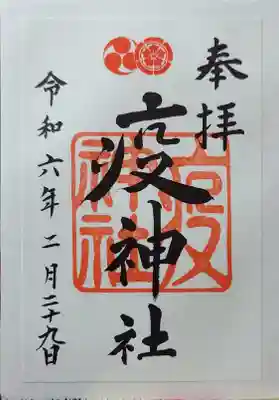 奉拝
疫神社
令和六年二月二十九日
疫神社